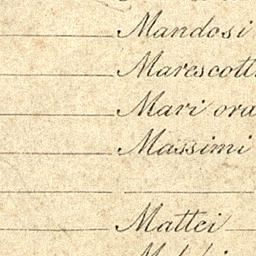 Mandosi
Marescott
Mari ora
Massimi
Mattei